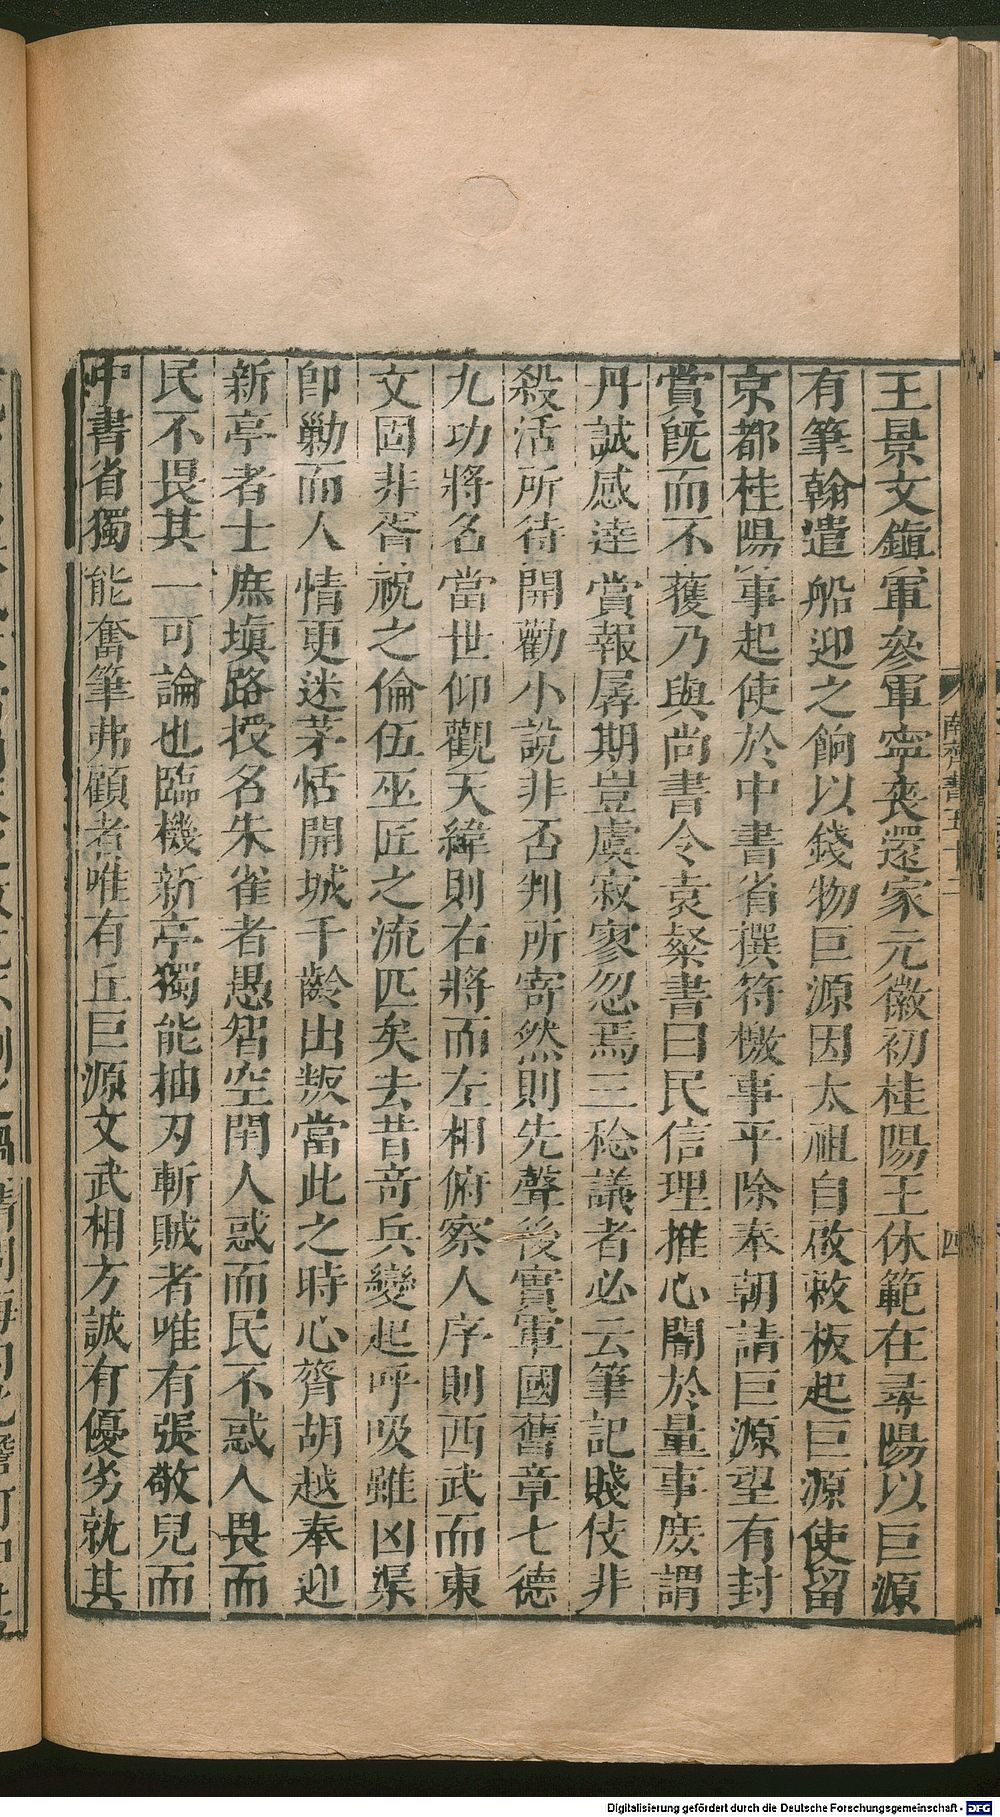 王景文鎭軍參軍寧喪還家元徽初桂陽王休範在尋陽以巨源
有筆翰遣船迎之餉以錢物巨源因太祖自啟敕板起巨源使留
京都桂陽事起使於中書省撰符檄事平除奉朝請巨源望有封
賞旣而不獲乃與尚書令袁粲書曰民信理推心闇於量事庶謂
丹誠感達賞報孱期豈虞寂寥忽焉三稔議者必云筆記賤伎非
殺活所待開勸小說非否判所寄然則先聲後實軍國舊章七德
九功將名當世仰觀天緯則右將而左相俯察人序則西武而東
文固非胥祝之倫伍巫匠之流匹矣去昔奇兵變起呼吸雖凶渠
卽勦而人情更迷茅恬開城千齡出叛當此之時心膂胡越奉迎
新亭者士庶塡路投名朱雀者愚智空閈人惑而民不惑人畏而
民不畏其一可論也臨機新亭獨能抽刃斬賊者唯有張敬兒而
中書省獨能奮筆弗顧者唯有丘巨源文武相方誠有優劣就其
南齊書五十二
四
Digitalisierung gefördert durch die Deutsche Forschungsgemeinschaft - DFG